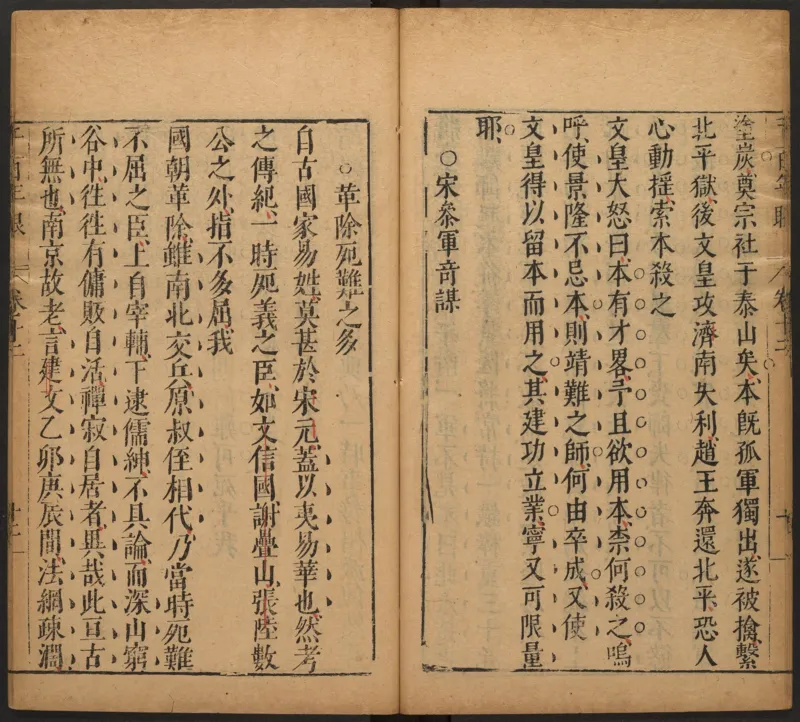 塗炭奠宗社于泰山矣本既孤軍獨出遂被擒繫
北平獄後文皇攻濟南失利趙王奔還北平恐人
心動搖索本殺之
文皇大怒曰本有才畧予且欲用本柰何殺之嗚
呼使景隆不忌本則靖難之師何由卒成又使
文皇得以留本而用之其建功立業寧又可限量
耶
○宋叅軍奇謀
○革除死難之多
自古國家易姓莫甚於宋元蓋以夷易華也然考
之傳紀一時死義之臣如文信國謝疊山張陸數
公之外指不多屈我
國朝革除雖南北交兵原叔侄相代乃當時死難
不屈之臣上自宰輔下逮儒紳不具論而深山窮
谷中徃徃有傭販自活禪寂自居者異哉此亘古
所無也南京故老言建文乙卯庚辰間法網疎濶